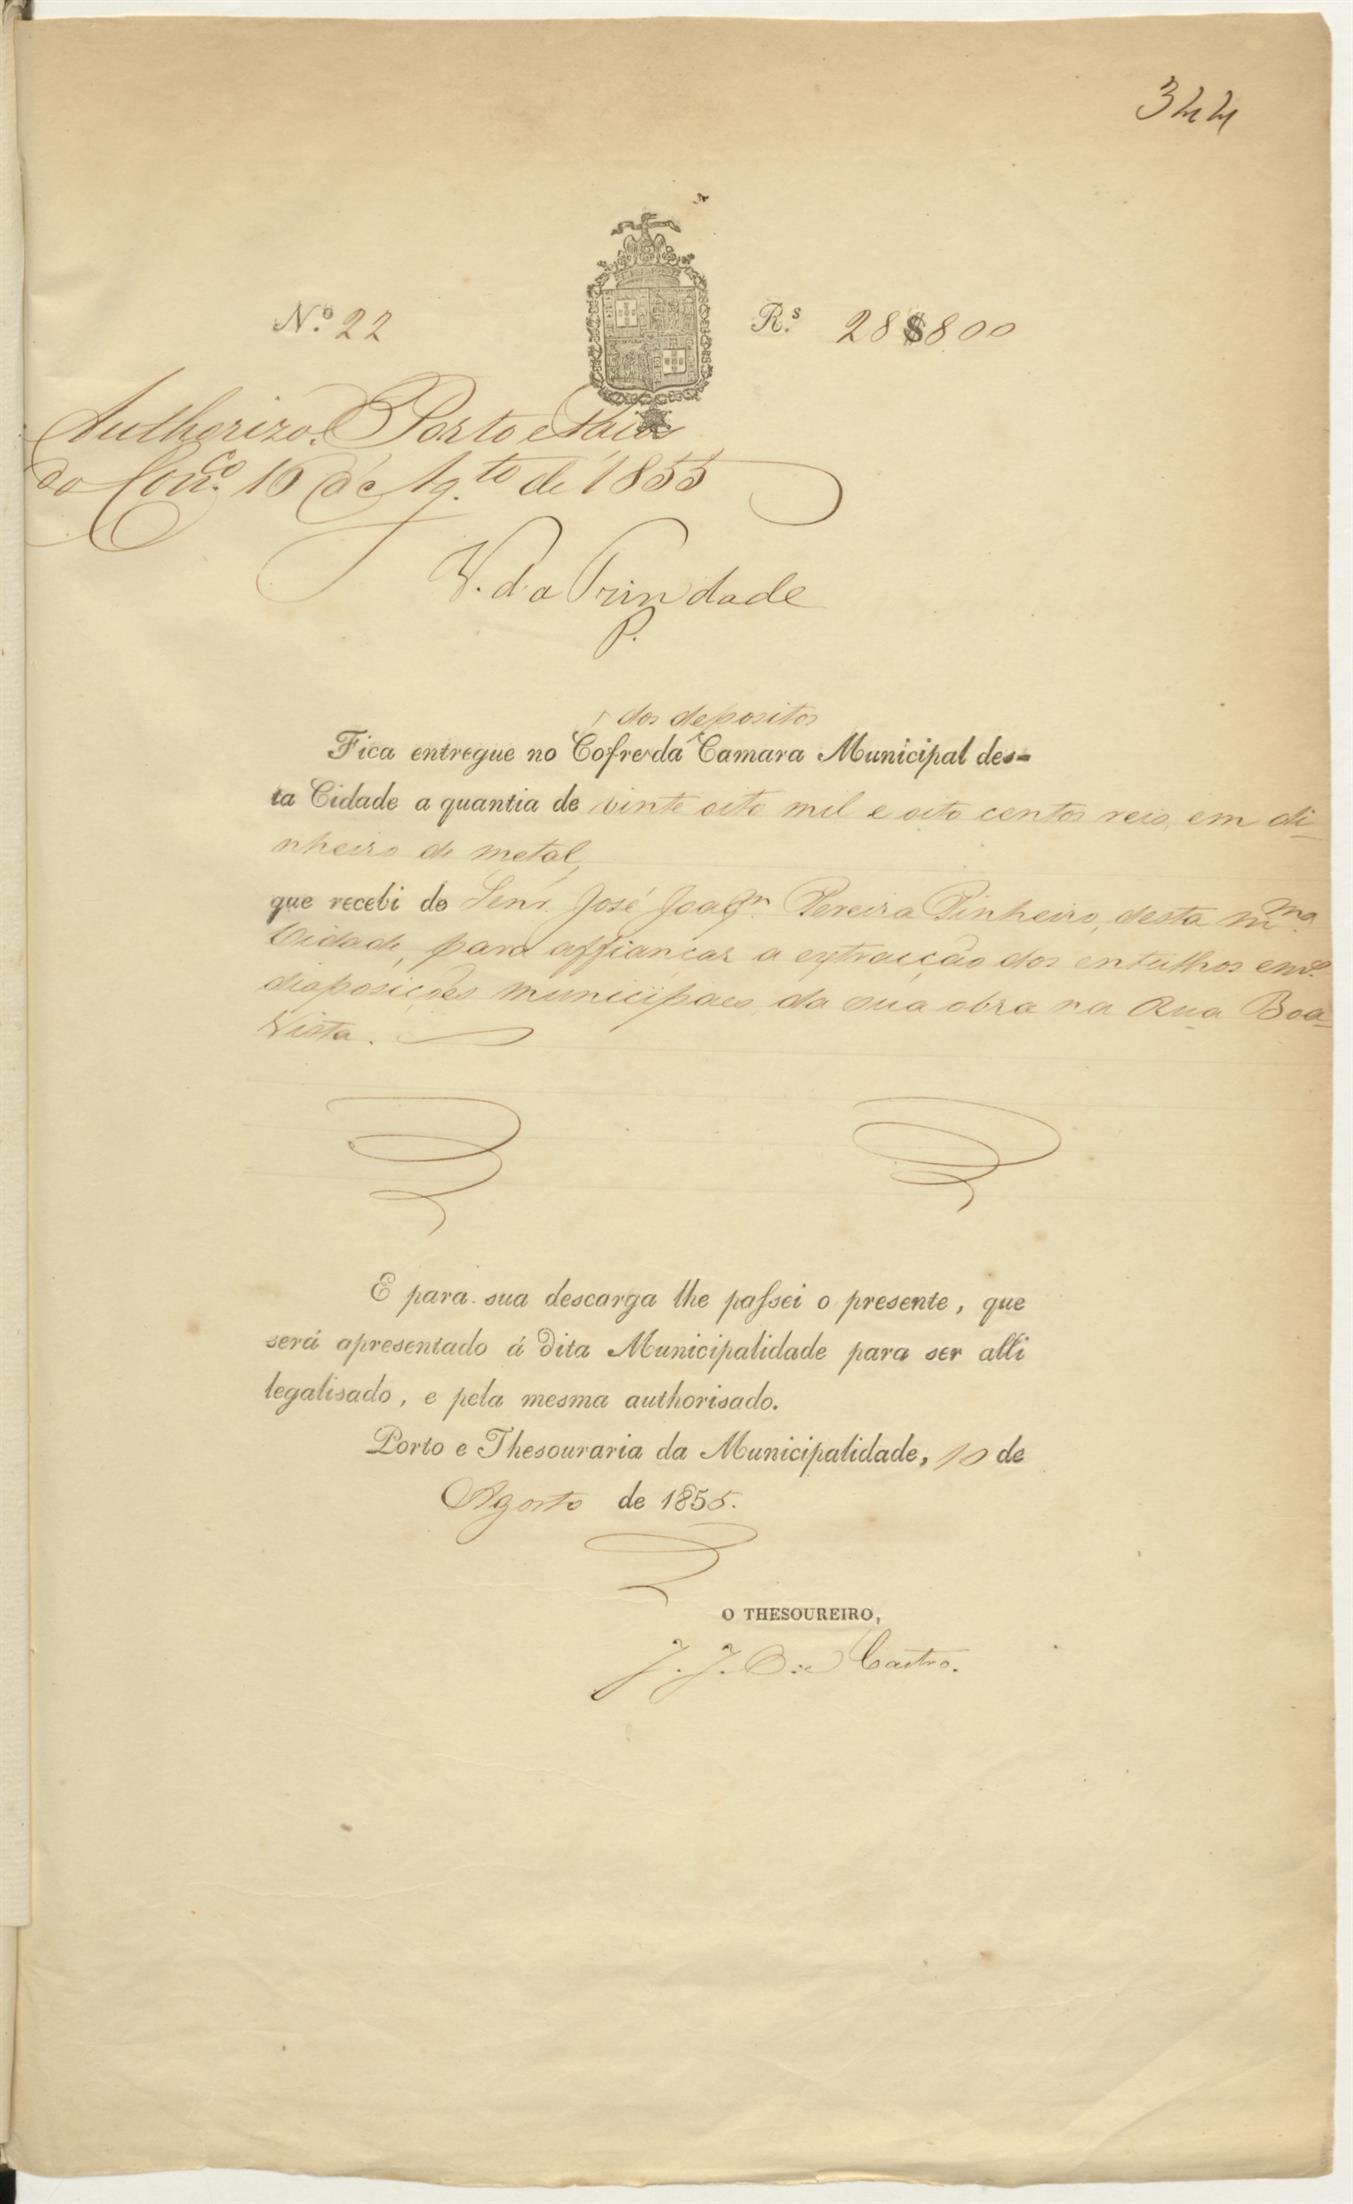 344
N.º 22
R.s 28$800
Authorizo. Porto e Paços
do Conc.º 16 de Ag.to de 1855
V. da Trindade
P.
dos depositos
Fica entregue no Cofre da Camara Municipal des-
ta Cidade a quantia de vinte oito mil e oito centos reis, em di-
nheiro de metal,
que recebi do Senr. José Joaq.m Pereira Pinheiro, desta m.ma
Cidade, para affiançar a extracção dos entulhos e m.s
disposições municipaes da sua obra na Rua Boa-
Vista.
E para sua descarga lhe passei o presente, que
será apresentado á dita Municipalidade para ser alli
legalisado, e pela mesma authorisado.
Porto e Thesouraria da Municipalidade, 10 de
Agosto de 1855.
O THESOUREIRO,
J. J. de Castro.